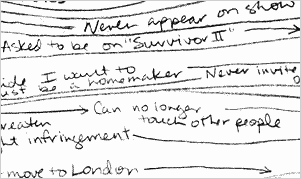 Never appear on show
Asked to be on "Survivor II"
I want to
be a homemaker
Never invite
Can no longer
touch other people
infringement
move to London